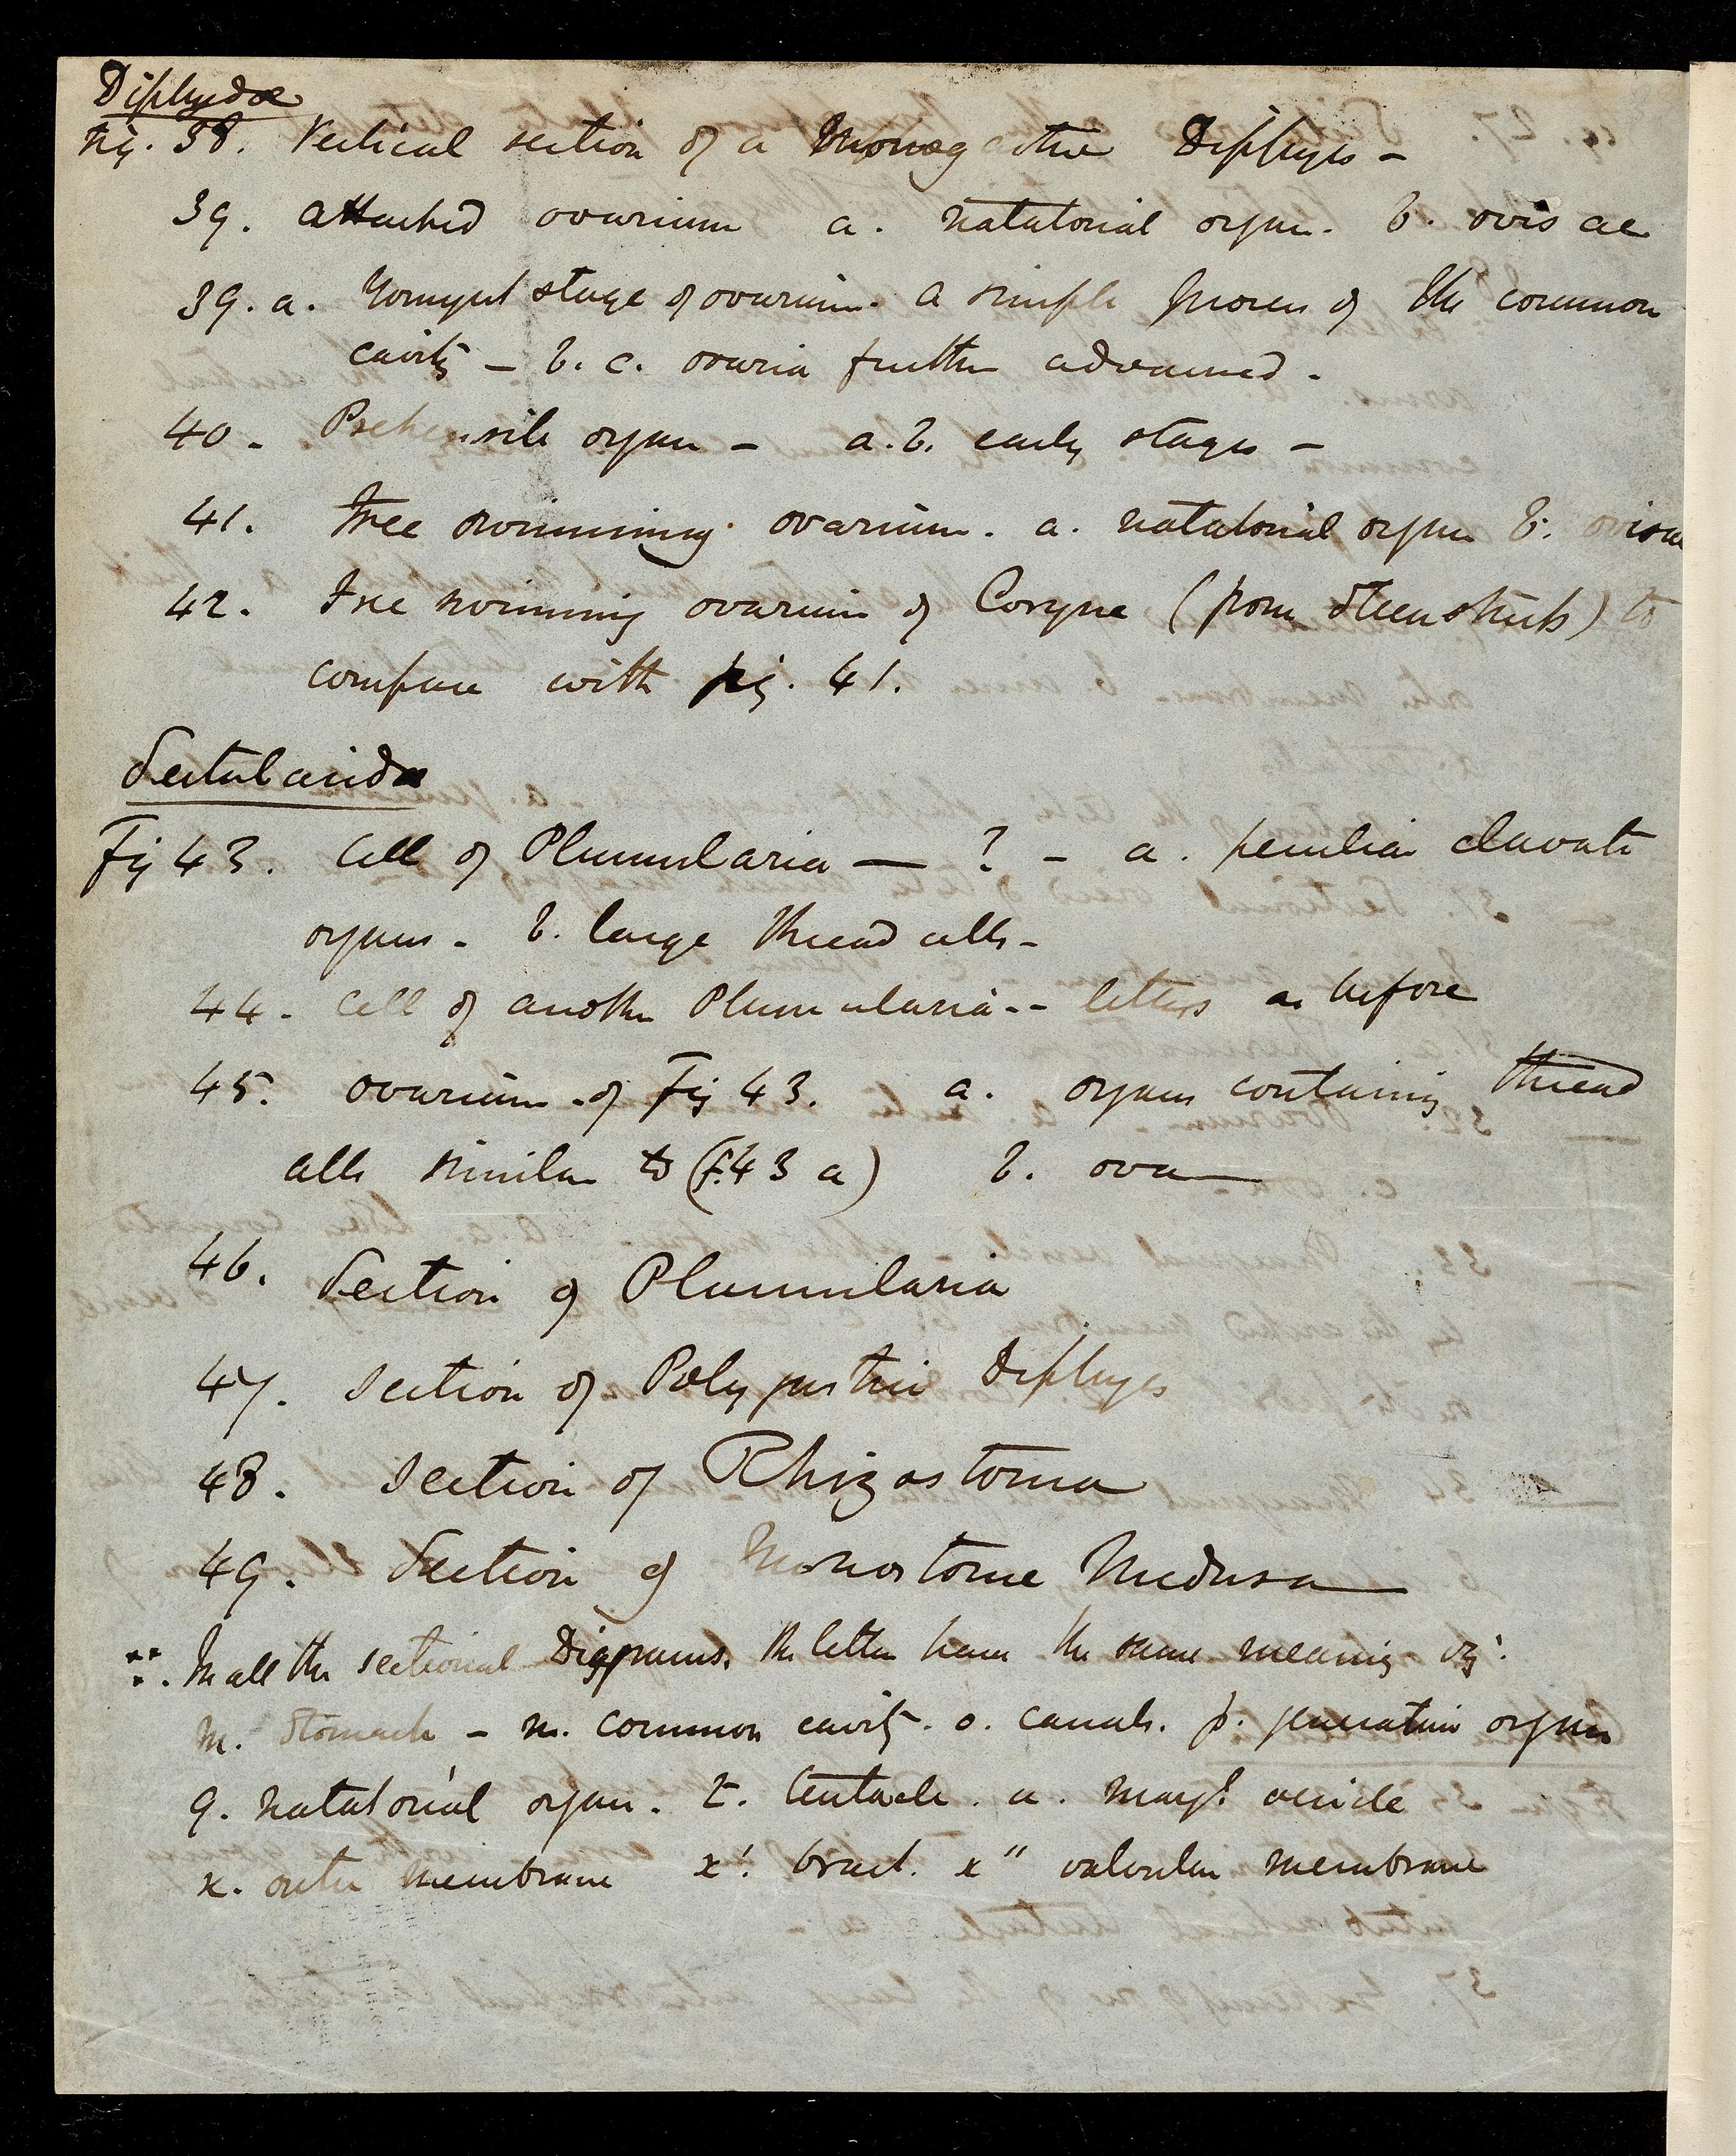 Diphydæ
Fig. 38. Vertical section of a Monogastric Diphyes –
39. attached ovarium a. natatorial organ. b. ovisac
39. a. Youngest stage of ovarium. a simple process of the common
cavity – b. c. ovaria further advanced.
40 – Prehensile organ – a. b. early stages –
41. Free swimming ovarium. a. natatorial organ b. ovisac
42. Free swimming ovarium of Coryne (from Steenstrup) to
compare with fig. 41.
Sertularidæ
Fig 43. Cell of Plumularia — ? – a. peculiar clavate
organs – b. large thread cells –
44 – Cell of another Plumularia – – letters as before
45. ovarium of Fig 43. a. organs containing thread
cells similar to (f. 43 a) b. ova —
46. Section of Plumularia
47. Section of Polygastric Diphyes
48. Section of Rhizostoma
49. Section of Monostome Medusa —
In all the sectional Diagrams, the letters have the same meaning viz:
m. Stomach – n. common cavity. o. canals. p. generative organ
q. natatorial organ. t. tentacle. u. margl vesicle
x. outer membrane x'. bract. x'' valvular membrane